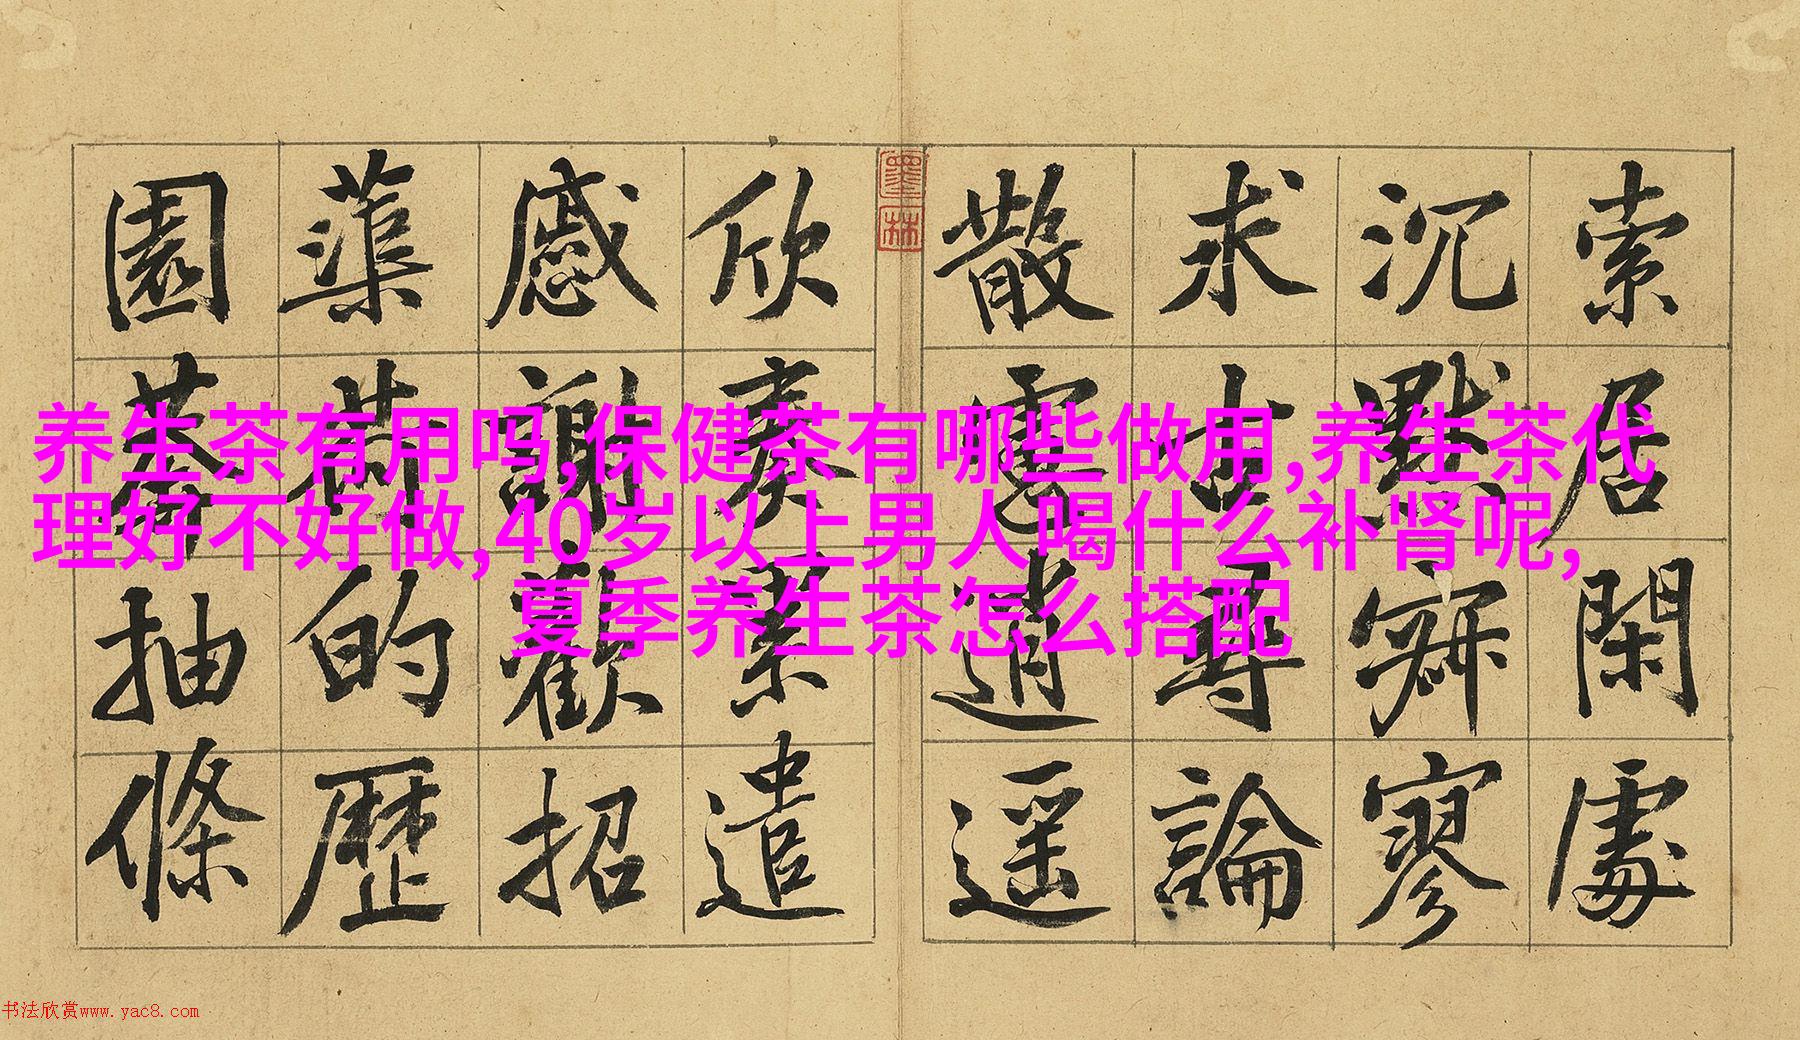 索居閑處
沉默寂寥
求古尋論
散慮逍遥
欣奏累遣
慼謝歡招
蕖荷的歷
園莽抽條
墨林
养生茶有用吗,保健茶有哪些做用,养生茶代
理好不好做,40岁以上男人喝什么补肾呢,
夏季养生茶怎么搭配
书法欣赏www.yac8.com